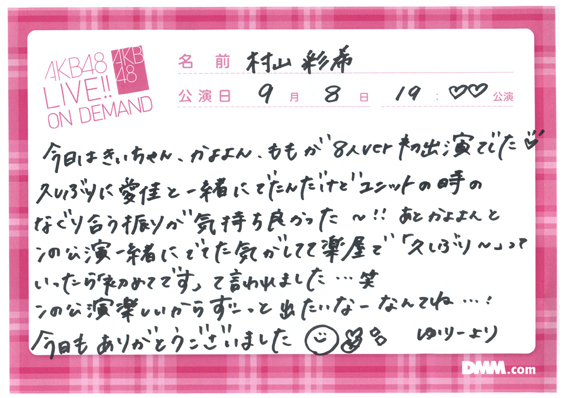 AKB48
LIVE!!
ON DEMAND
AKB
48
名前 村山 彩希
公演日 9月 8日 19:♡♡公演
今日はきぃちゃん、かよよん、ももが8人ver初出演でした♡
久しぶりに愛佳と一緒にでたんだけどユニットの時の
なぐり合う振りが気持ち良かった〜!! あとかよよんと
この公演一緒にでてた気がしてて楽屋で「久しぶり〜」って
いったら「初めてです」て言われました…笑
この公演楽しいからずーっと出たいなーなんてね…!
今日もありがとうございました ゆいりーより
DMM.com